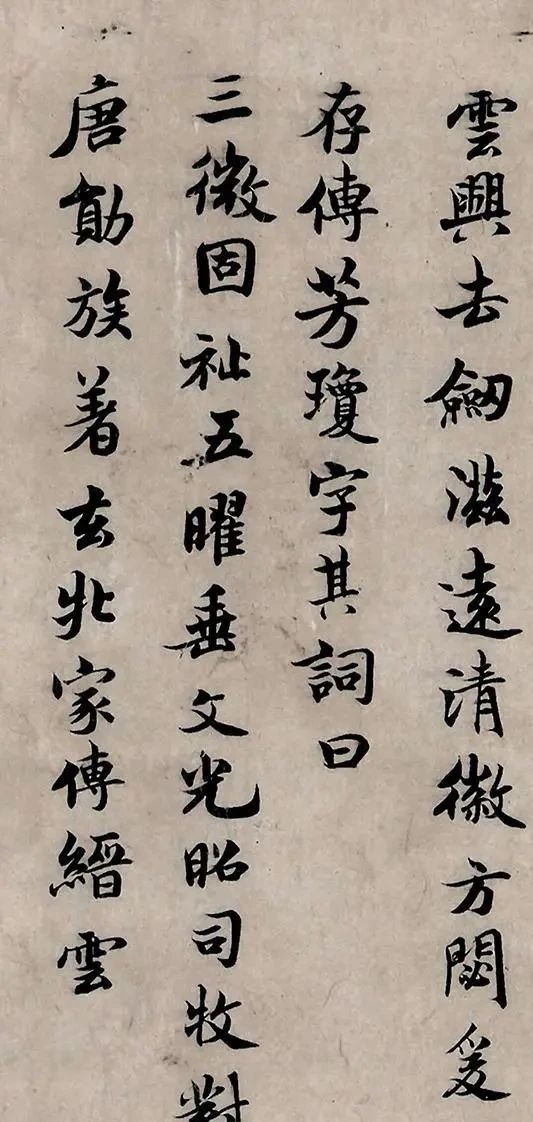 雲興去劒滋遠清徽方閟爰
存傳芳瓊字其詞曰
三微固祉五曜垂文光昭司牧對
唐勛族著玄牝家傳縉雲